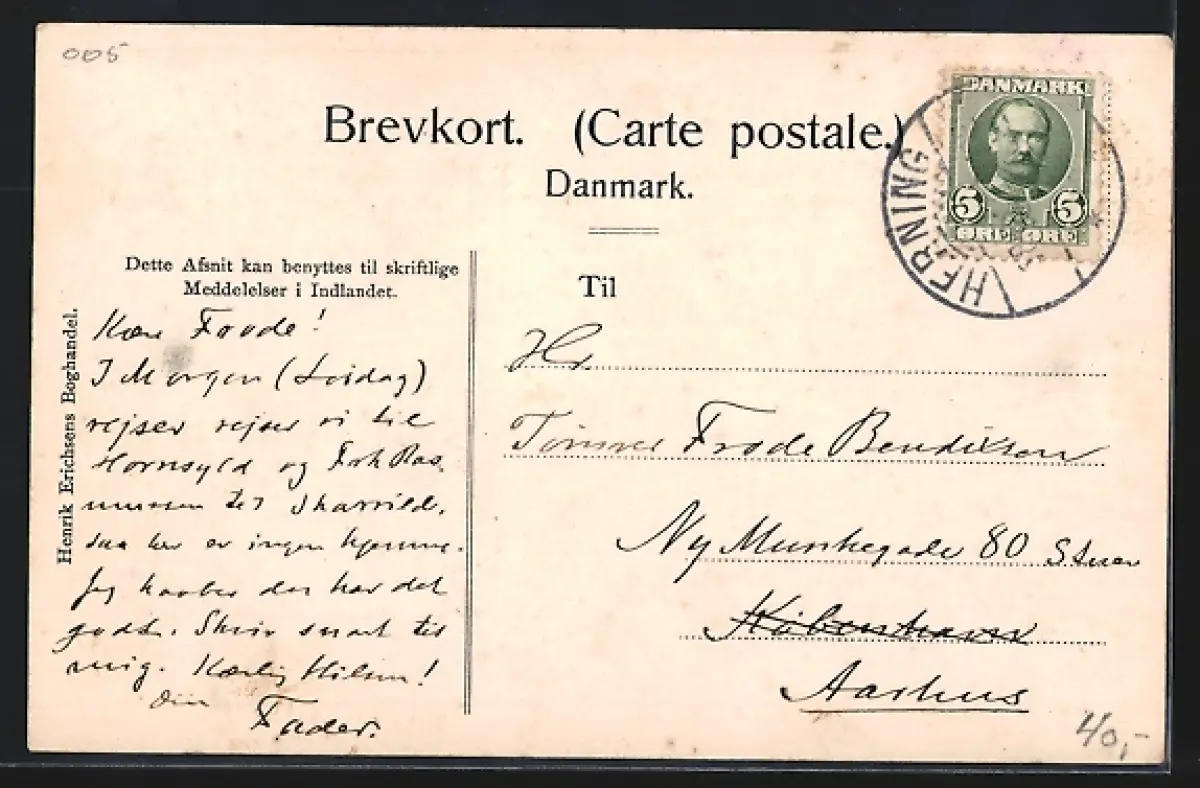 005
Brevkort. (Carte postale.)
Danmark.
DANMARK
5 5
ØRE ØRE
HERNING
Dette Afsnit kan benyttes til skriftlige
Meddelelser i Indlandet.
Henrik Erichsens Boghandel.
Kære Frode!
I Morgen (Lördag)
rejser rejser vi til
Hornsyld og Frk Ras-
mussen til Skarrild,
saa her er ingen hjemme.
Jeg haaber du har det
godt. Skriv snart til
mig. Kærlig Hilsen!
din
Fader.
Til
Hr.
Tømrer Frode Bendixsen
Ny Munkegade 80 Stuen
København
Aarhus
40,-